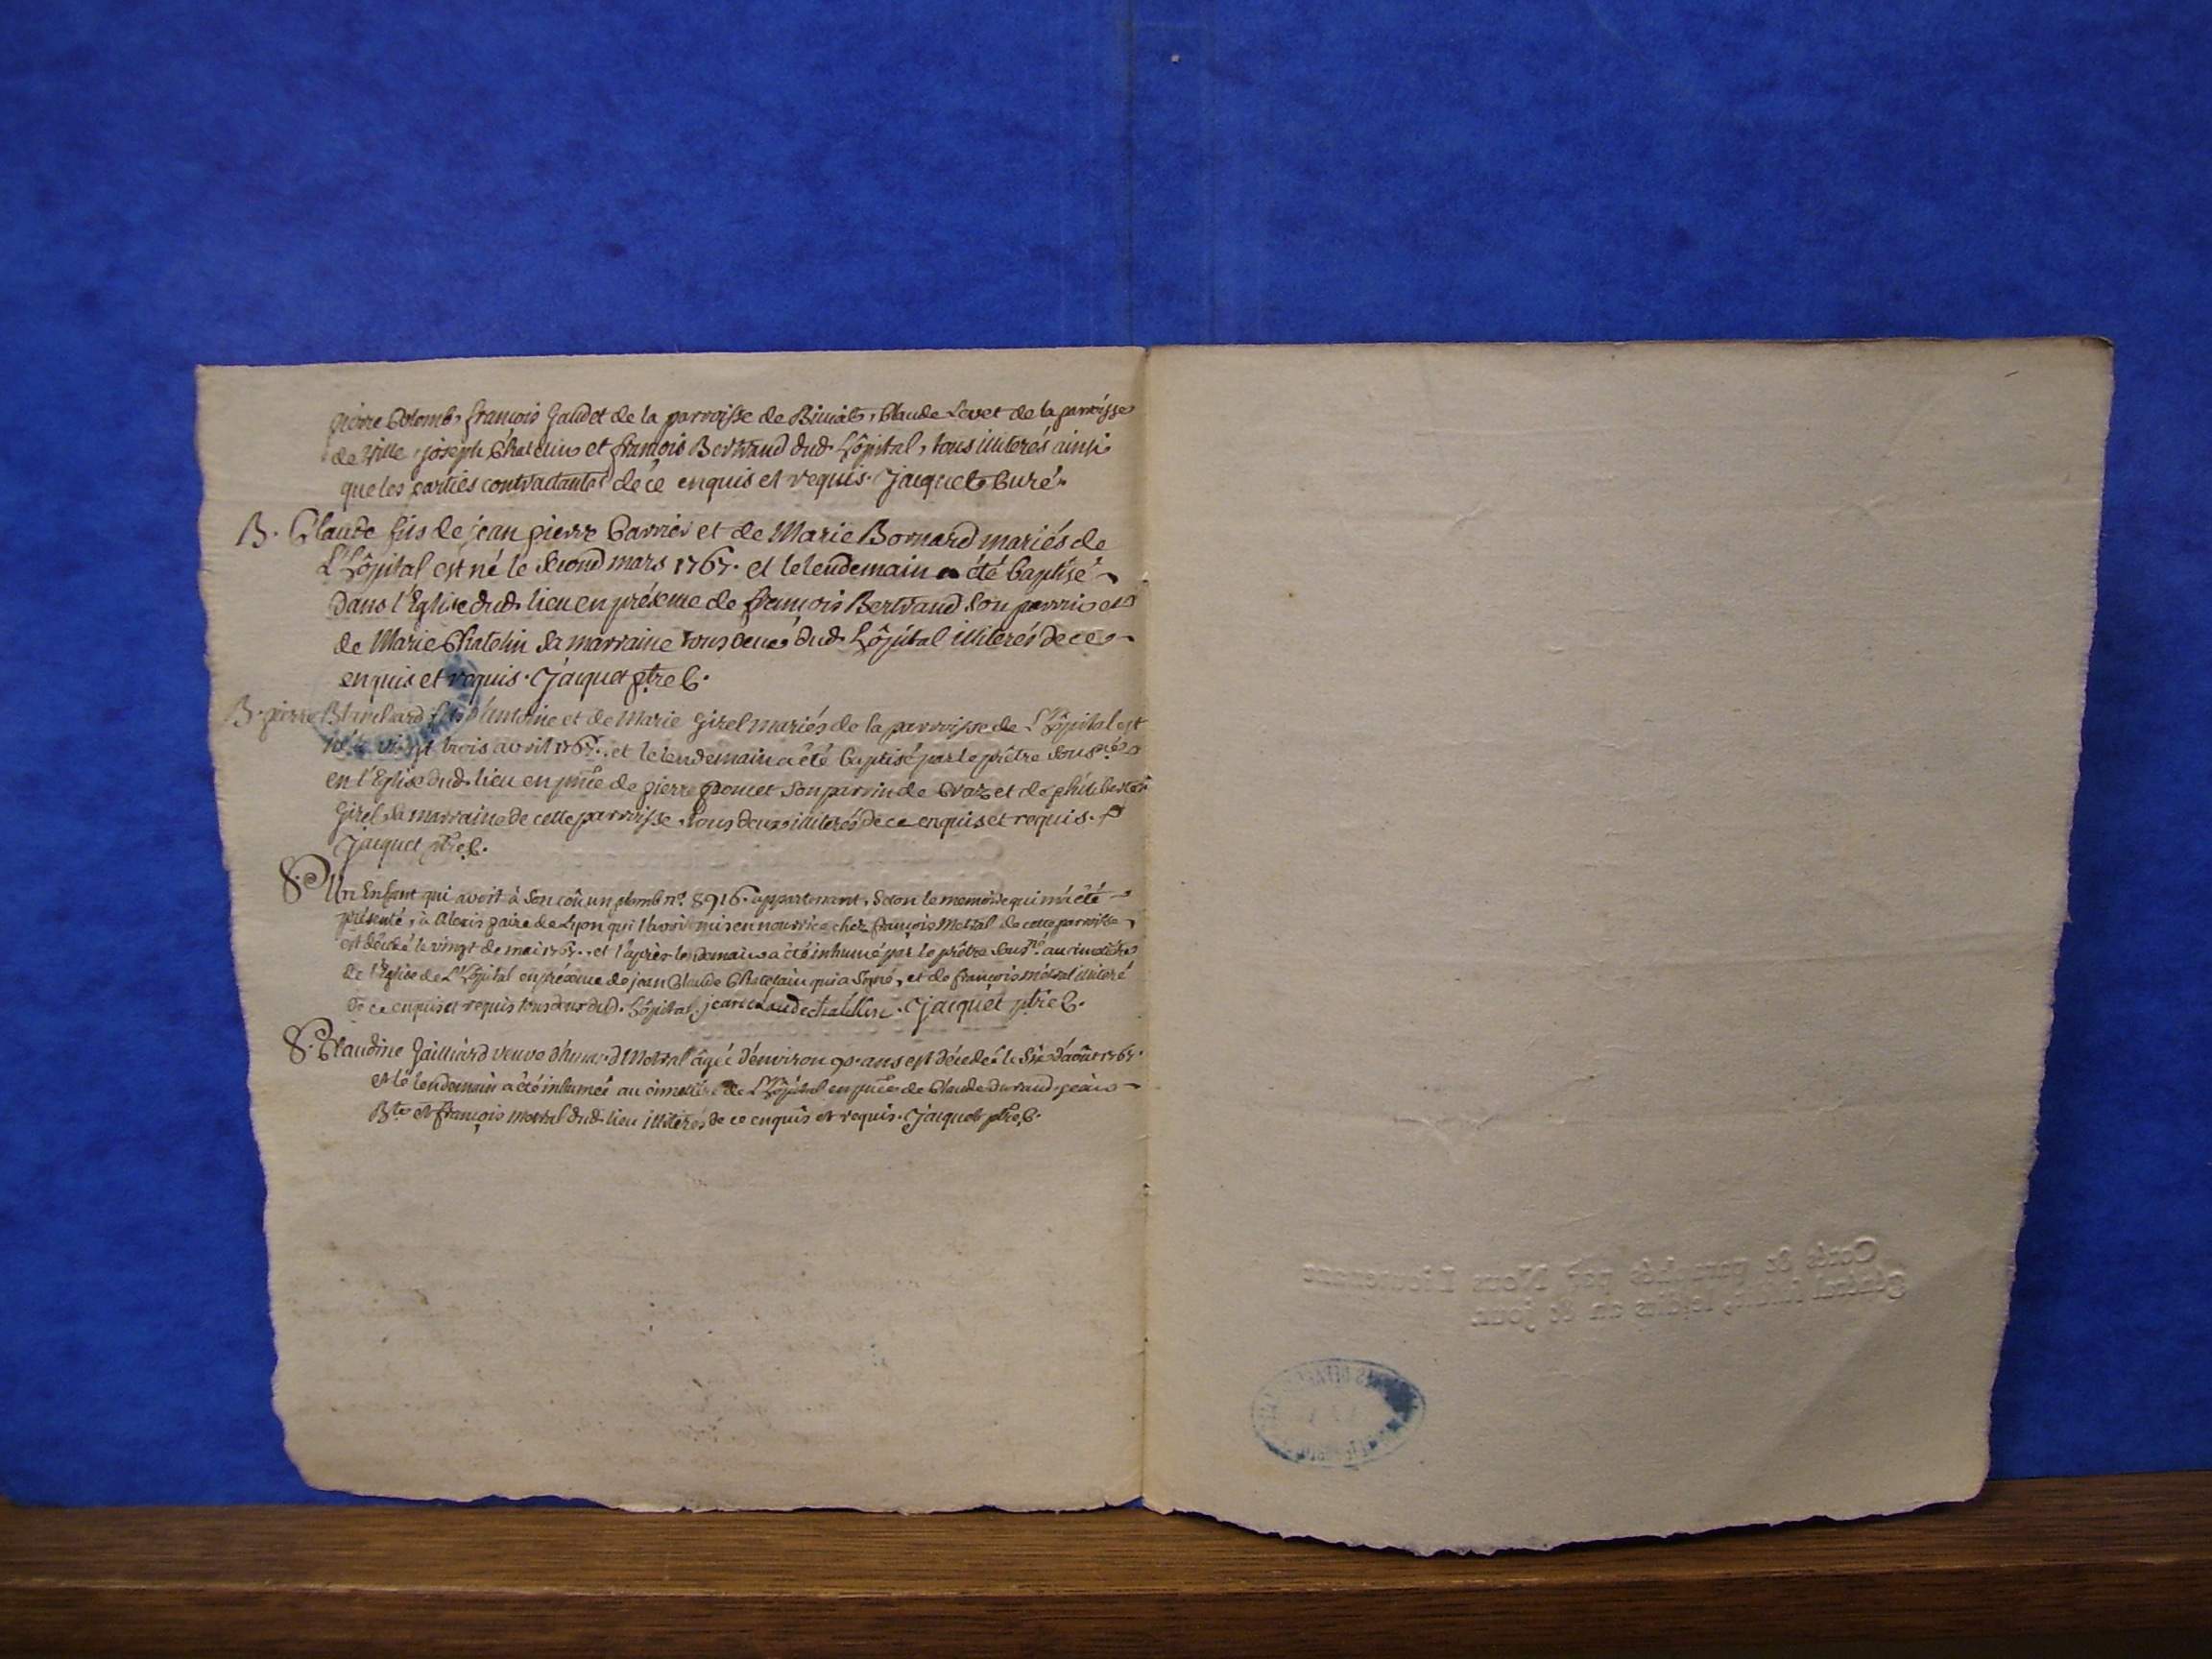 pierre Colomb, françois Gaudet de la parroisse de Billiat, Claude Levet de la parroisse
de Ville, joseph Chatelin et françois Bertrand dud. Lôpital, tous illiterés ainsi
que les parties contractantes de ce enquis et requis. Jacquet Curé.
B. Claude fils de jean pierre Carrier et de Marie Bornard mariés de
L'Lôpital est né le second mars 1767. et le lendemain a été baptisé
dans l'Eglise dud. lieu en présence de françois Bertrand Son parrin et
de Marie Chatelin Sa marraine tous deux dud. Lôpital illiterés de ce
enquis et requis. Jacquet ptre C.
B. pierre Blanchard fils d'Antoine et de Marie Girel mariés de la parroisse de L'Lôpital est
né le vingt trois avril 1767. et le lendemain a été baptisé par le prêtre Sous né
en l'Eglise dud. lieu en pnce de pierre poncet Son parrin de Craz et de philiberte
Girel Sa marraine de cette parroisse tous deux illiterés de ce enquis et requis.
Jacquet ptre C.
S. Un Enfant qui avoit à Son coû un plomb n.º 8916. appartenant, Selon le memoire qui m'a été
présenté, à Alexis paire de Lyon qui l'avoit mis en nourrice chez françois Metral de cette parroisse
est décédé le vingt de mai 1767. et l'après lendemain a été inhumé par le prêtre Sous né au cimetière
de l'Eglise de L'Lôpital en présence de jean Claude Chatelain qui a Signé, et de françois métral illiteré
de ce enquis et requis tous deux dud. Lôpital. jean claude chatelin. Jacquet ptre C.
S. Claudine Gailliard veuve d'himb.d Metral âgée d'environ 90. ans est décedée le Six d'août 1767.
et le lendemain a été inhumée au cimetière de L'Lôpital en pnce de Claude durand, jean
B.te et françois metral dud. lieu illiterés de ce enquis et requis. Jacquet ptre C.
Cotés & paraphés par Nous Lieutenant
Général lesdits an & jour.